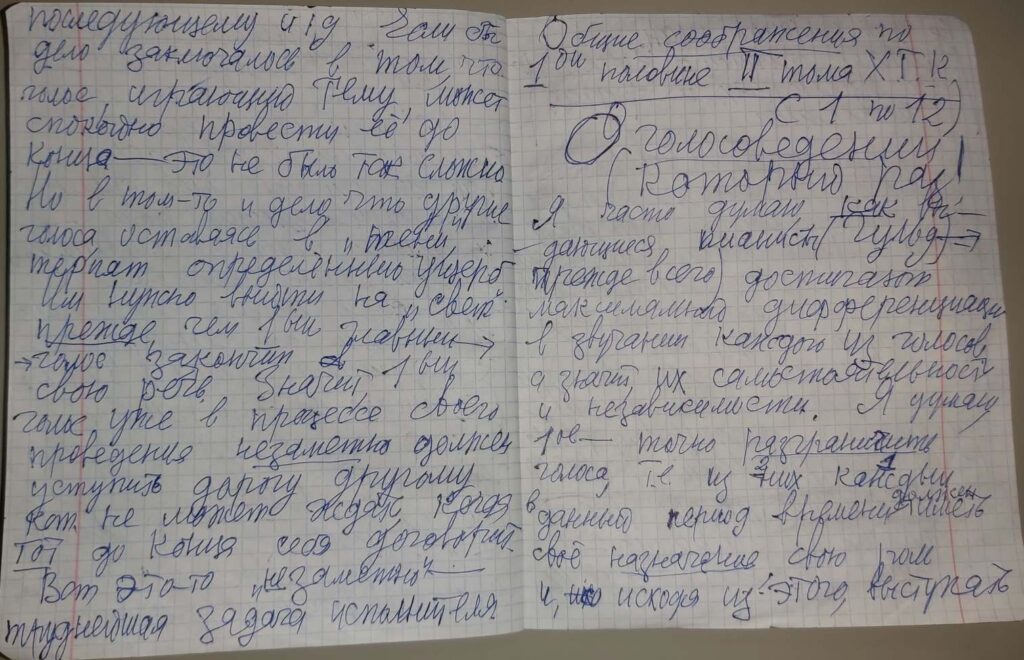 последующему и т.д. Если бы
дело заключалось в том что
голос, играющий Тему, может
спокойно провести её до
конца — это не было так сложно
Но в том-то и дело что другие
голоса, оставаясь в „тени"
терпят определённый ущерб
Им нужно выйти на „свет"
прежде, чем 1ый главный →
→ голос закончит
свою речь, Значит, 1ый
голос уже в процессе своего
проведения незаметно должен
уступить дорогу другому
кот. не может ждать когда
тот до конца себя договорит.
Вот это-то „незаметно" —
труднейшая задача исполнителя
Общие соображения по
1ой половине II тома Х.Т.К.
С 1 по 12)
О голосоведении!
(который раз!
Я часто думаю как вы-
дающиеся пианисты (Гульд) →
прежде всего) достигают
максимальной дифференциации
в звучании каждого из голосов,
а значит, их самостоятельности
и независимости. Я думаю
1ое — точно разграничить
голоса, Те из них каждый
в данный период времени должен иметь
своё назначение свою роль
и, исходя из этого, выступать